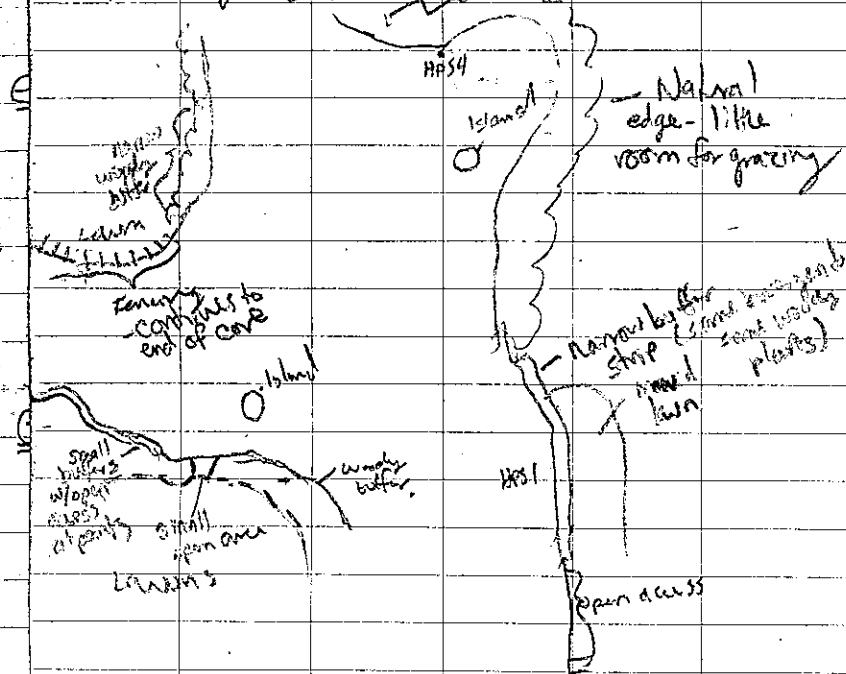 HPS4
Island
- Natural
edge - little
room for grazing
narrow
woody
buffer
Lawn
Fencing
- continues to
end of cove
Island
- Narrow buffer
strip (some
some woody
plants)
mow'd
lawn
small
buffers
w/open
access
at points
small
open area
Lawns
woody
buffer.
HPS1
open access